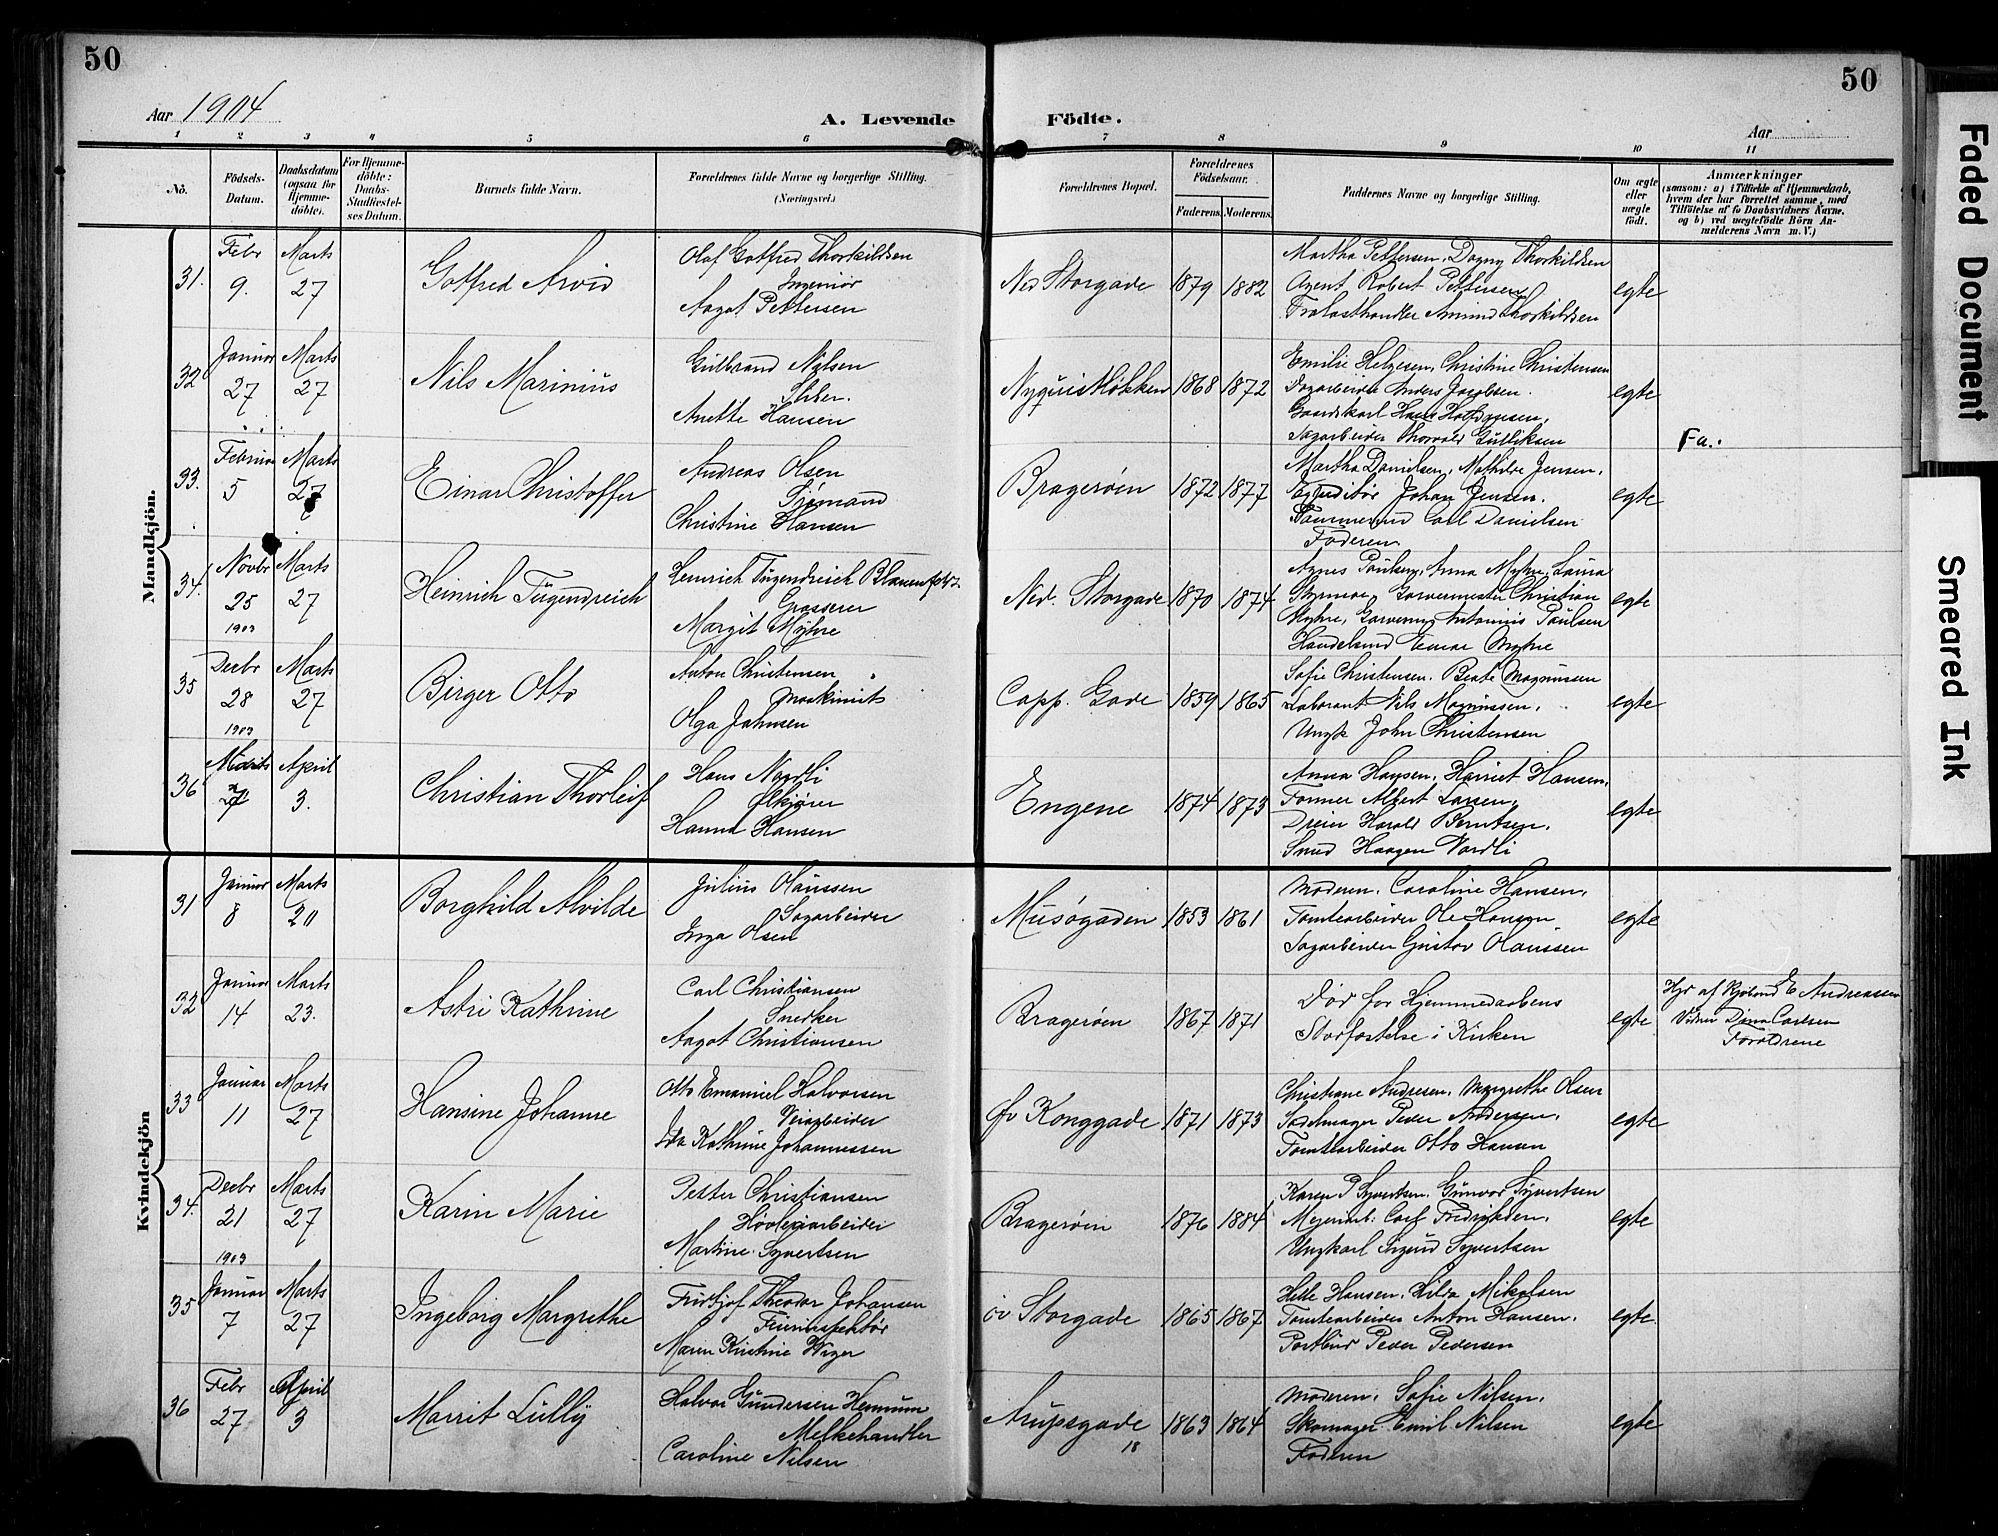 50
50
Aar 1904
A. Levende Födte.
Aar
1 2 3 4 5 6 7 8 9 10 11
No.
Födsels-Datum.
Daabsdatum (ogsaa för Hjemme-döbte).
For Hjemme-döbte: Daabs-Stadfæstel-ses Datum.
Barnets fulde Navn.
Forældrenes fulde Navne og borgerlige Stilling. (Næringsvei.)
Forældrenes Bopæl.
Forældrenes Födselsaar.
Faderens. Moderens.
Faddernes Navne og borgerlige Stilling.
Om ægte eller uægte födt.
Anmærkninger
(saasom: a) i Tilfælde af Hjemmedaab, hvem der har forrettet samme, med Tilföielse af to Daabsvidners Navne, og b) ved uægtefödte Börn An-melderens Navn m. V.)
Mandkjön.
31. Febr 9. Marts 27 Gotfred Arvid
Olaf Gotfred Thorkildsen
Ingeniør
Aagot Pettersen
Ned Storgade 1879 1882
Martha Pettersen, Dagny Thorkildsen
Agent Robert Pettersen
Trælasthandler Amund Thorkildsen
egte
32 Januar 27 Marts 27 Nils Marinius
Gulbrand Nilsen
Sliber.
Anette Hansen
Nyquistløkken 1868 1872
Emilie Helgesen, Christine Christensen
Dagarbeider Anders Jacobsen.
Gaardskarl Hans
Sagarbeider Thorvald Gulliksen
egte
Fa.
33. Februar 5 Marts 27 Einar Christoffer
Andreas Olsen
Sjømand
Christine Hansen
Bragerøen 1872 1877
Martha Danielsen, Mathilde Jensen,
Expeditør Johan Jensen.
Tømmermd Carl Danielsen
Faderen
egte
34. Novbr 25 1903 Marts 27 Heinrich Tugendreich
Heinrich Tugendreich Blauenfeldt
Grosserer
Margit Myhre
Ned. Storgade 1870 1874
Agnes Paulsen, Anna Myhre, Laura
Garvermester Christian
Myhre, Garversv Antonius Paulsen
Handelsmd Einar Myhre
egte
35 Decbr 28 1903 Marts 27 Birger Otto
Anton Christensen
Maskinist
Olga Jahnsen
Capp. Gade 1859 1865
Sofie Christensen, Beate Magnussen
Laborant Nils Magnussen,
Ungk John Christensen
egte
36 Marts 7 April 3. Christian Thorleif
Hans Nordli
Ølkjører
Hanna Hansen
Engene 1874 1873
Anna Hansen, Harriet Hansen,
Former Albert Larsen,
Dreier Harald Berntsen,
Smed Haagen Nordli
egte
Kvindekjön
31 Januar 8 Marts 20 Borghild Alvilde
Julius Olaussen
Sagarbeider
Inga Olsen
Musøgaden 1853 1861
Moderen, Caroline Hansen,
Tomtearbeider Ole Hansen
Sagarbeider Gustav Olaussen
egte
32 Januar 14 Marts 23. Astri Kathrine
Carl Christiansen
Snedker
Aagot Christiansen
Bragerøen 1867 1871
Død før Hjemmedaabens
Stadfæstelse i Kirken
egte
Hjd af Rjdmd E Andreassen
Vidner Dina Carlsen
Forældrene
33 Januar 11 Marts 27 Hansine Johanne
Otto Emanuel Halvorsen
Veiarbeider
Ida Kathrine Johannessen
Øv Konggade 1871 1873
Christiane Andresen, Margrethe Olsen
Sadelmager Peder Andersen,
Tomtearbeider Otto Hansen
egte
34. Decbr 21 1903 Marts 27 Karin Marie
Petter Christiansen
Høvleriarbeider
Martine Syvertsen
Bragerøen 1876 1884
Karen P Syvertsen, Gunvor Syvertsen
Meieriarb. Carl Fredriksen,
Ungkarl Sigurd Syvertsen
egte
35 Januar 7 Marts 27 Ingeborg Margrethe
Fridtjof Theodor Johansen
Maren Kirstine Wiger
øv Storgade 1865 1867
Helle Hansen, Hilda Mikalsen
Tomtearbeider Anton Hansen,
Postbud Peder Pedersen
egte
36 Febr 27 April 3 Marrit Lully
Halvor Gundersen Hennum
Melkehandler
Caroline Nilsen
Arupsgade 18 1863 1864
Moderen, Sofie Nilsen,
Skomager Emil Nilsen
Faderen
egte
Faded Document
Smeared Ink